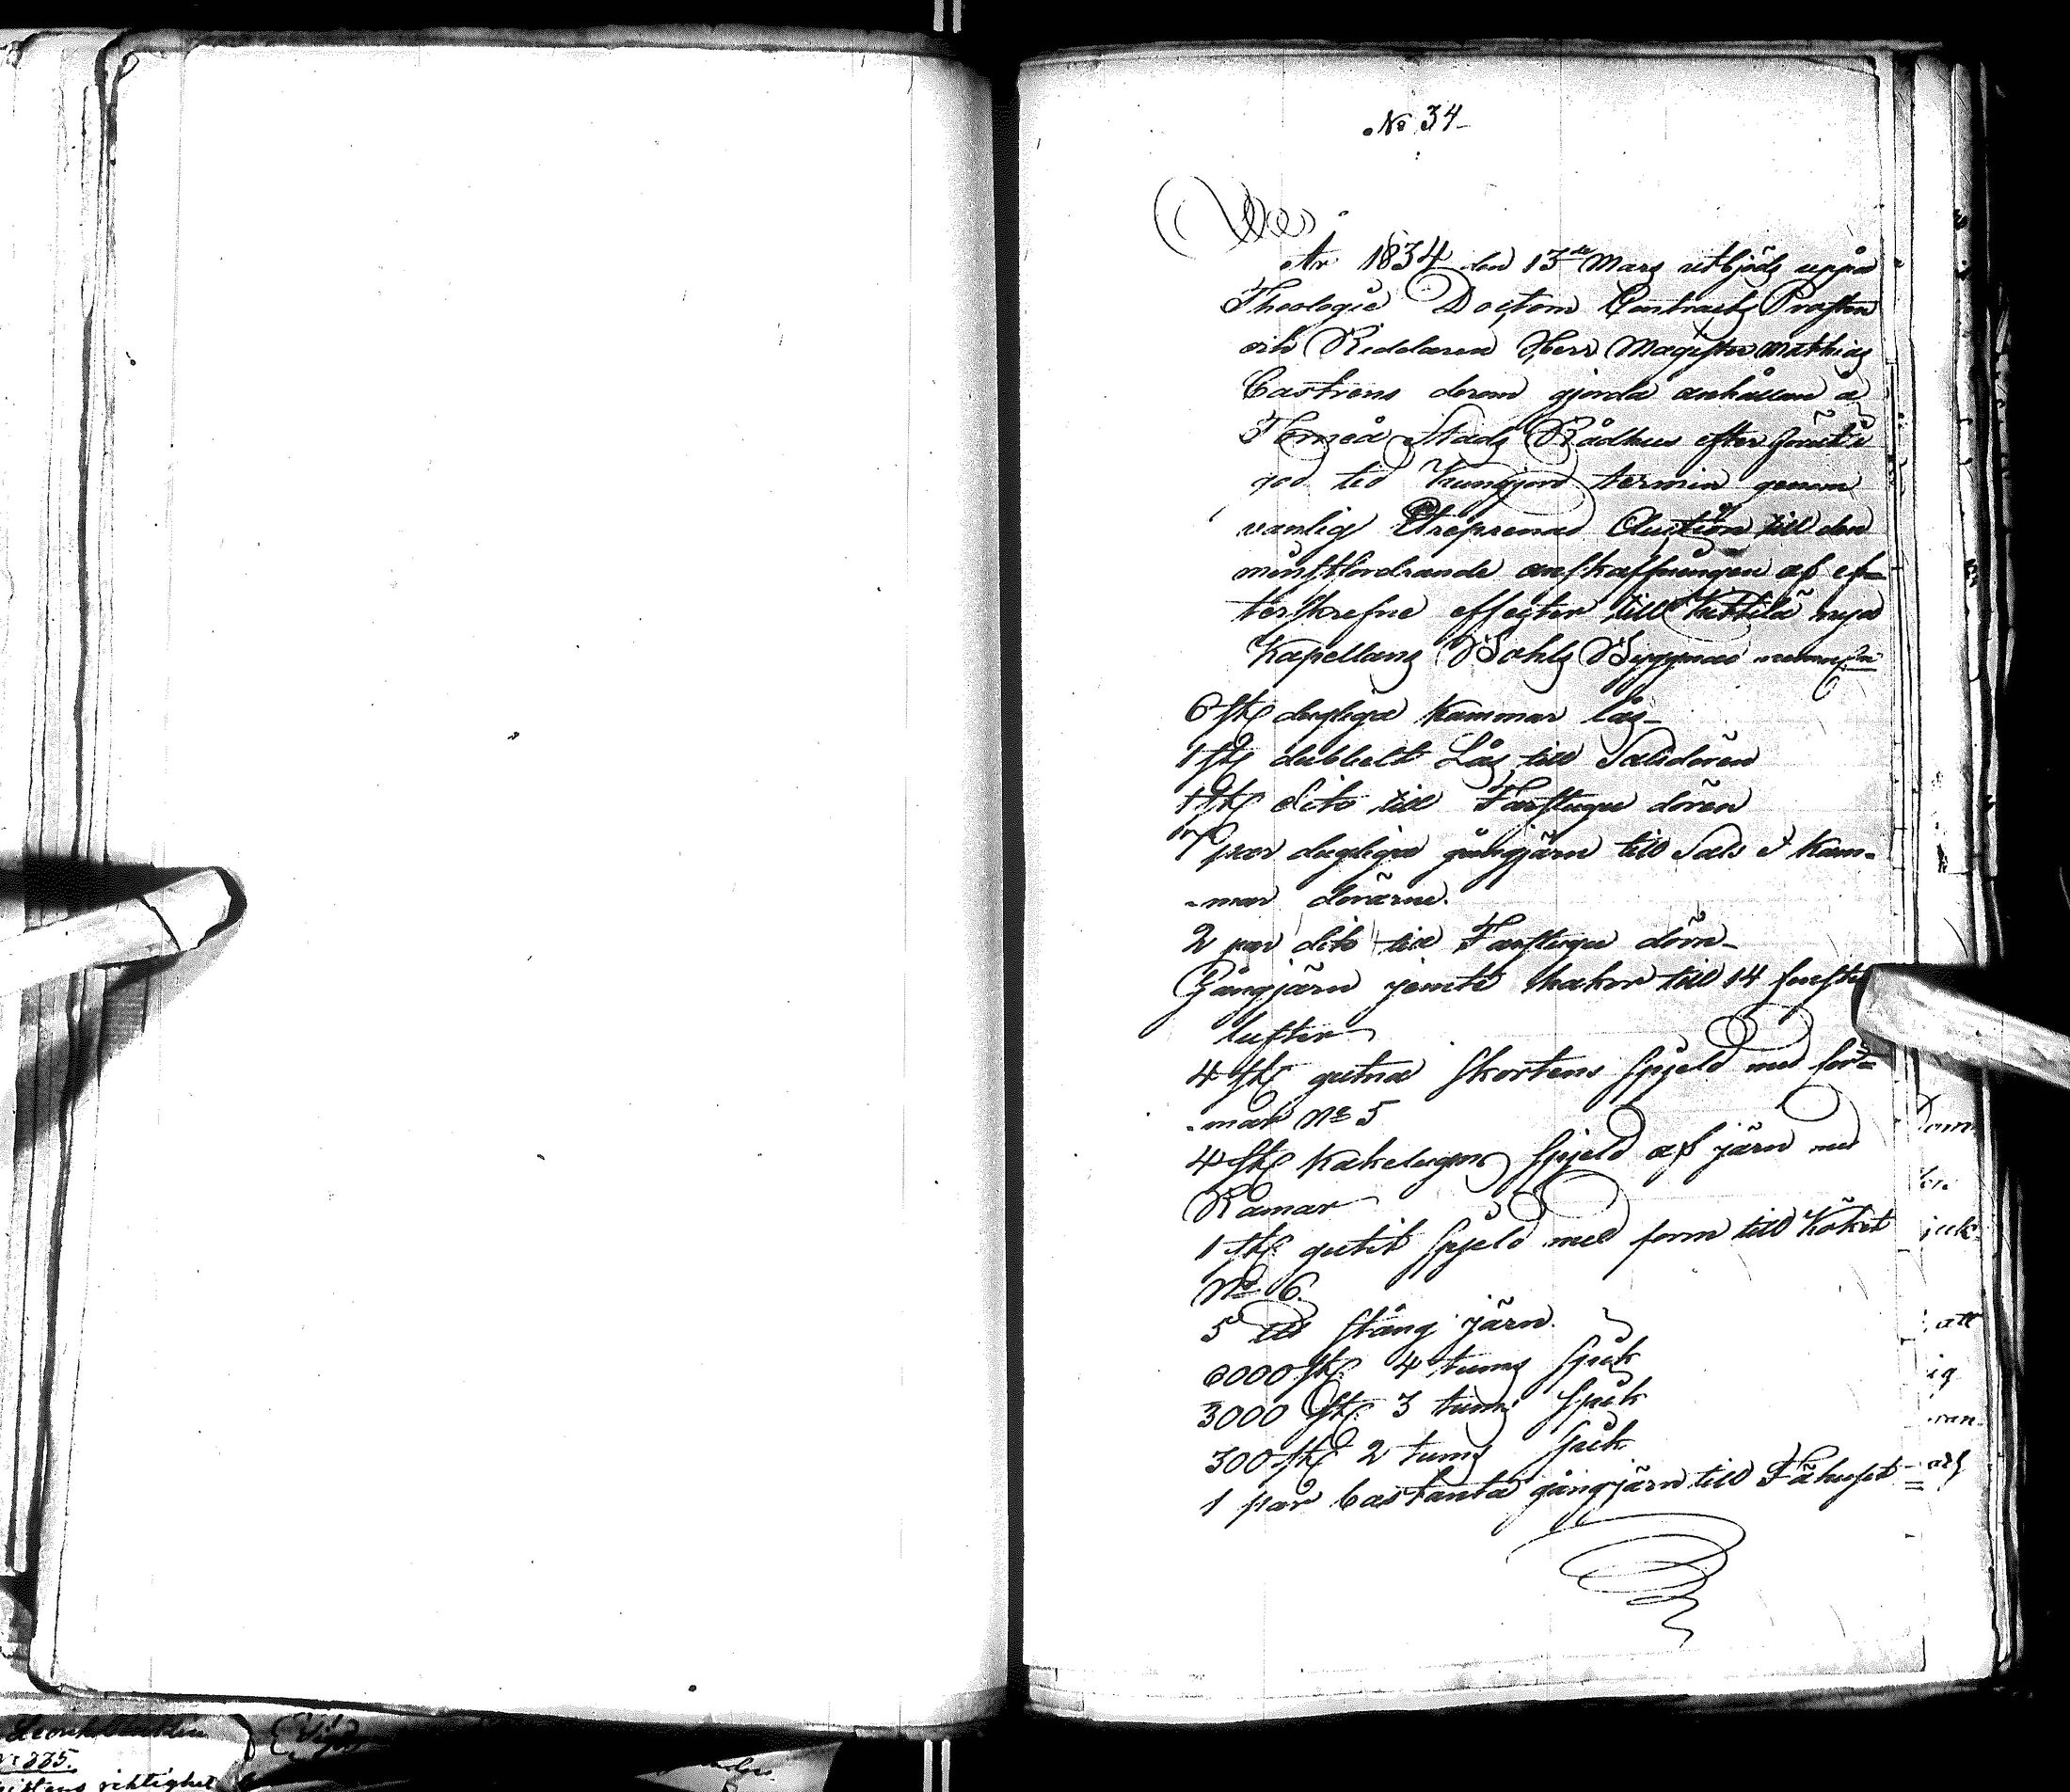 No 34
År 1834 den 13de Mars utbjöds uppå
Theologie Doctorn Contracts Prosten
och Riddaren Herr Magister Mathias
Castrens derom gjorda anhållan å
Torneå Stads Rådhus efter förut i
god tid kungjord termin genom
vanlig Entreprenad Auction till den
minstfordrande anskaffningen af ef-
terskrefne effecter till Kittilä nya
Kapellans Bohls Byggnad
6 stk dugliga Kammar lås
1 stk dubbelt Lås till Salsdören
1 stk dito till Farstugu dören
7 par dugliga gångjärn till Sals & Kam-
-mar dörarne.
2 par dito till Farstugu dörn
Gångjärn jemte hakor till 14 fenster
lufter
4 stk gutna skorstens spjeld med for-
-mar No 5
4 stk Kakelugns spjeld af järn med
Ramar
1 stk gutit spjeld med form till Köket
No 6.
5 stång järn.
6000 stk 4 tums spik
3000 stk 3 tums spik
300 stk 2 tums spik
1 par bastanta gångjärn till Fähuset
att
ig
No 225.
riktighet